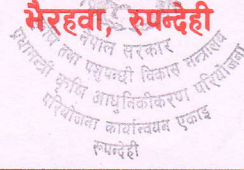 भैरहवा, रुपन्देही
नेपाल सरकार
तथा पशुपन्छी विकास मन्त्रालय
प्रधानमन्त्री कृषि आधुनिकीकरण परियोजना
परियोजना कार्यान्वयन एकाइ
रुपन्देही